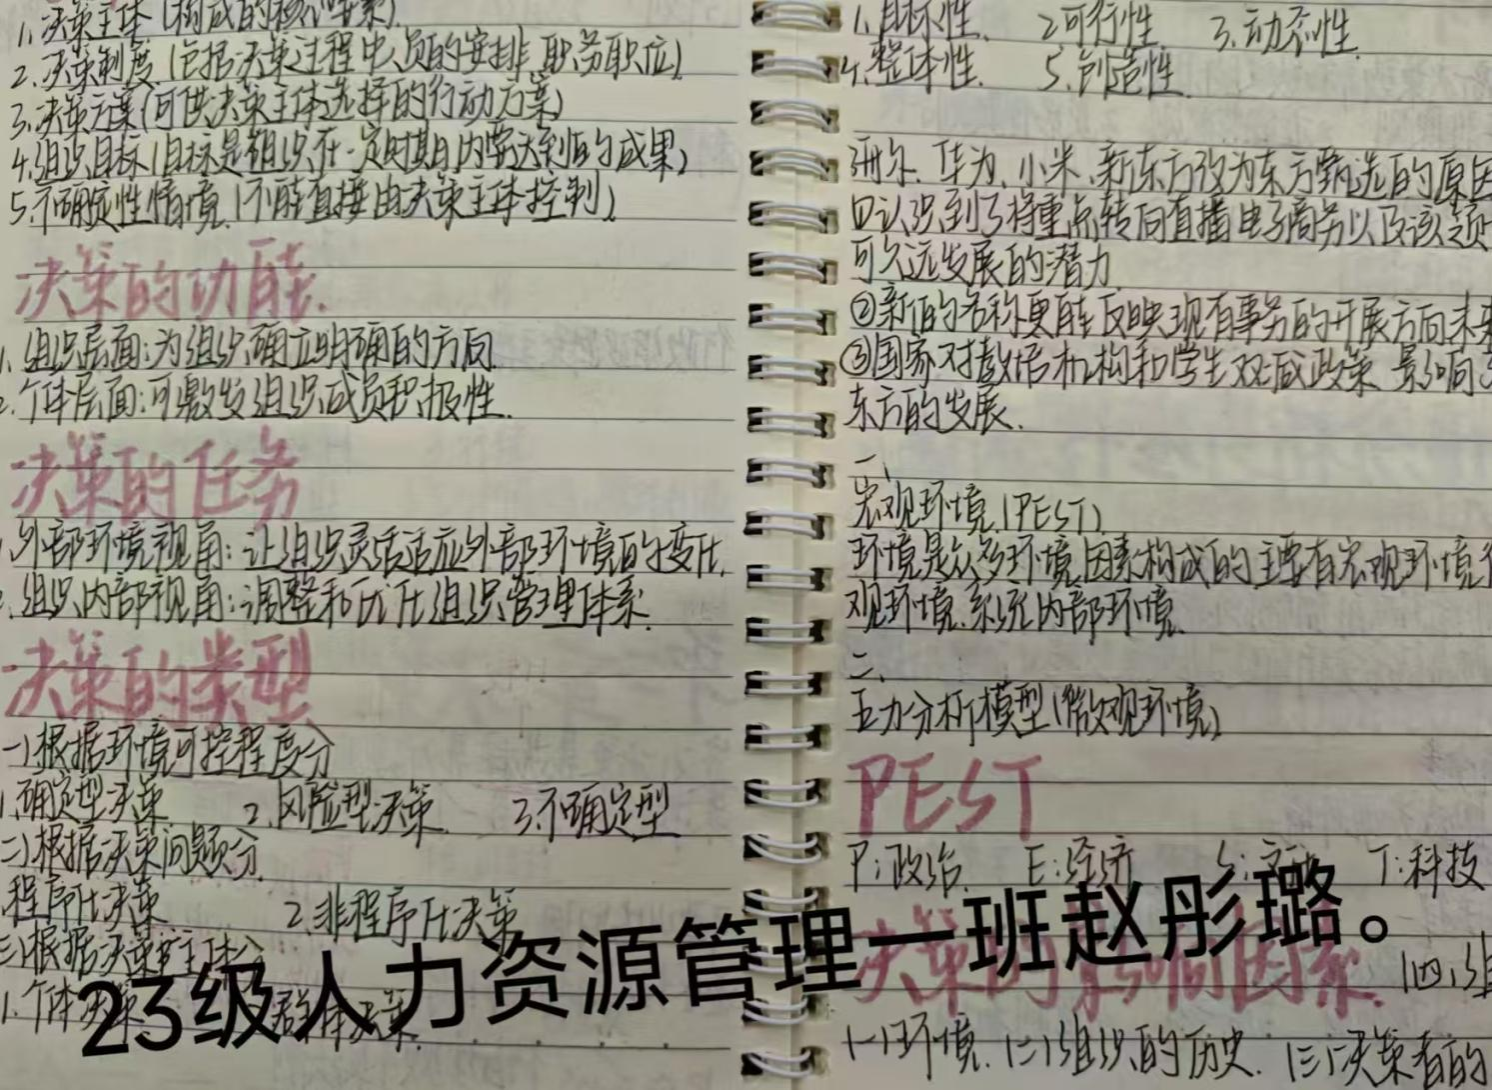 1.决策主体(构成的核心要素)
2.决策制度(包括决策过程中人员的安排、职务职位)
3.决策方案(可供决策主体选择的行动方案)
4.组织目标(目标是组织在一定时期内要达到的成果)
5.不确定性情境(不能直接由决策主体控制)
决策的功能.
1.组织层面:为组织确立明确的方向
2.个体层面:可激发组织成员积极性.
决策的任务
外部环境视角:让组织灵活适应外部环境的变化.
2.组织内部视角:调整和优化组织管理体系.
决策的类型
一)根据环境可控程度分
1.确定型决策 2.风险型决策. 3.不确定型
二)根据决策问题分.
程序化决策 2.非程序化决策
三)根据决策主体分
1.个体决策 群体决策.
1.目标性. 2.可行性 3.动态性.
4.整体性. 5.创造性.
华为、小米、新东方改为东方甄选的原因
认识到了将重点转向直播电子商务以及该领
可久远发展的潜力
②新的名称更能反映现有事务的开展方向未来
③国家对教培机构和学生双减政策影响
东方的发展.
一、
宏观环境(PEST)
环境是众多环境因素构成的主要有宏观环境
观环境.系统内部环境.
二、
五力分析模型(微观环境)
PEST
P:政治. E:经济 S:文 T:科技
决策的影响因素. (四)组
(一)环境. (二)组织的历史. (三)决策者的
23级人力资源管理一班赵彤璐。